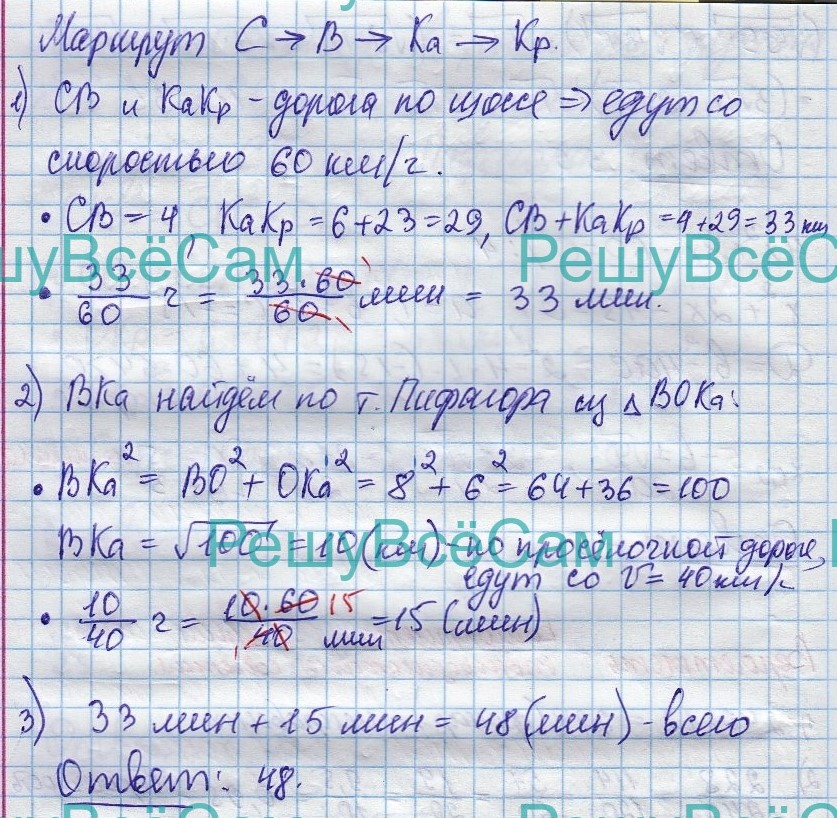 Маршрут С → В → Ка → Кр.
1) СВ и КаКр – дорога по шоссе ⇒ едут со
скоростью 60 км/ч.
• СВ = 4, КаКр = 6+23=29, СВ+КаКр =4+29=33 км
шуВсёСам РешуВсёС
• 33/60 ч = 33·60/60 мин = 33 мин.
2) ВКа найдём по т. Пифагора из △ ВОКа:
• ВКа² = ВО² + ОКа² = 8² + 6² = 64+36 = 100
ВКа = √100 = 10 (км) – по просёлочной дороге,
РешуВсёСам
едут со V = 40 км/ч
• 10/40 ч = 10·60/40 15 мин =15 (мин)
3) 33 мин + 15 мин = 48 (мин) – всего
Ответ: 48.
ВсёСам РешуВсёС